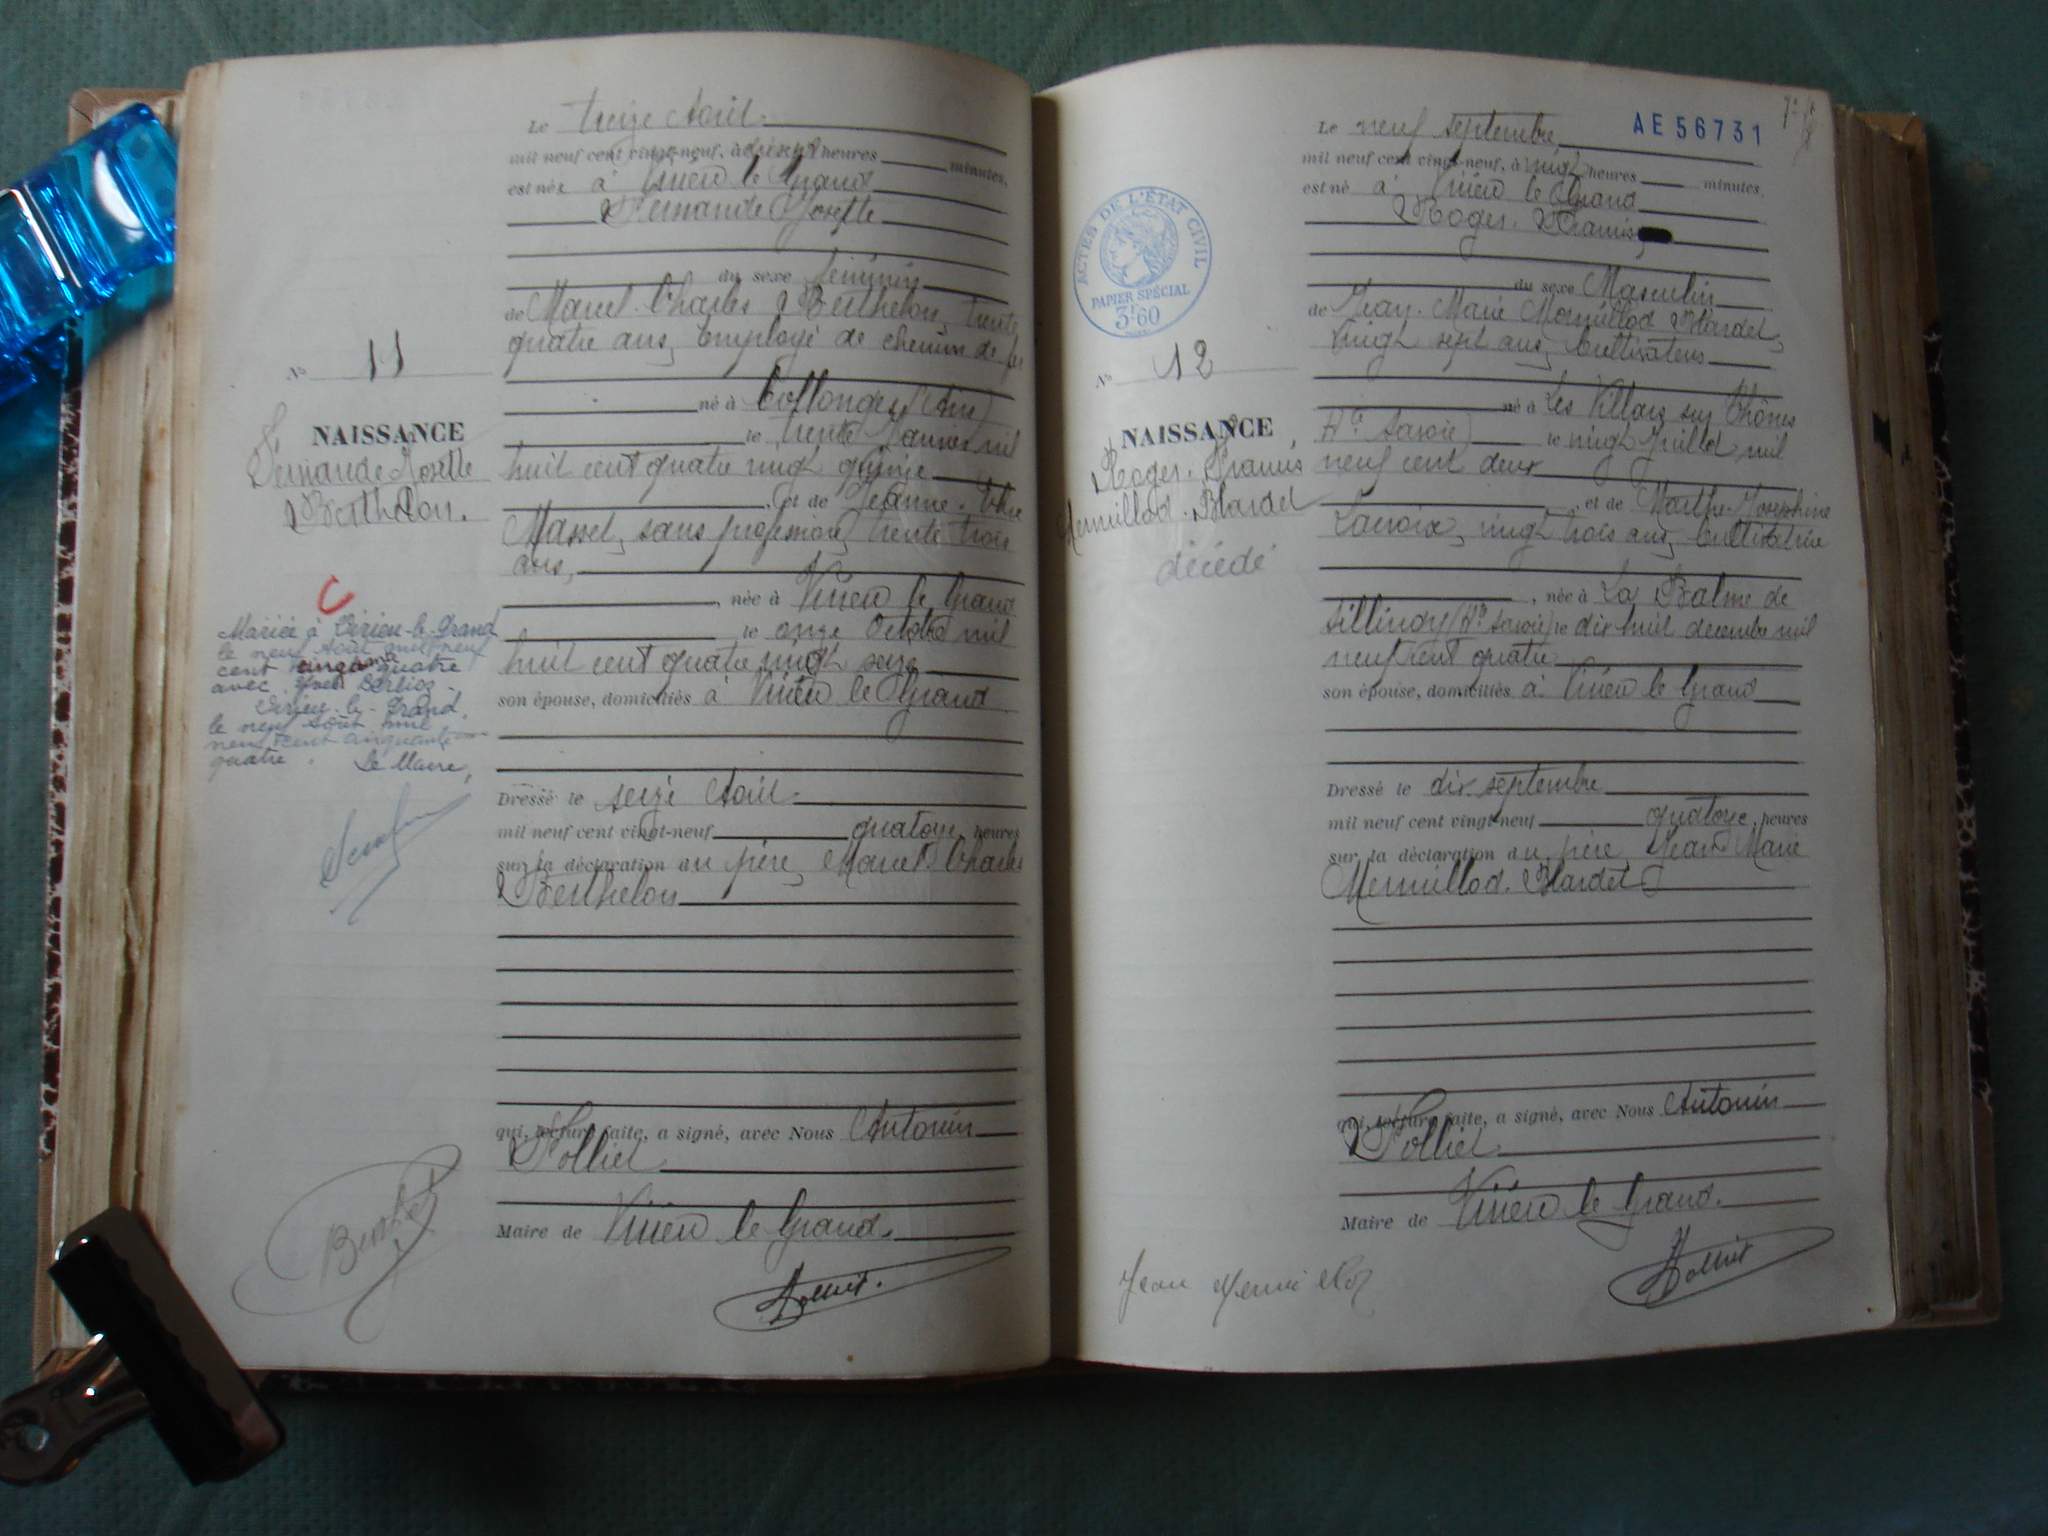 Le treize Août
mil neuf cent vingt-neuf, à heures minutes,
est née à Virieu le Grand
Fernande Josette
du sexe féminin
de Marcel Charles Berthelon, trente
quatre ans, Employé de chemin de fer
né à Collonges (Ain)
le trente Janvier mil
huit cent quatre vingt quinze
, et de Jeanne
Massel, sans profession, trente trois
ans,
, née à Virieu le Grand
le onze Octobre mil
huit cent quatre vingt seize
son épouse, domiciliés à Virieu le Grand
Dressé le seize Août
mil neuf cent vingt-neuf quatorze heures
sur la déclaration du père, Marcel Charles
Berthelon
qui, lecture faite, a signé, avec Nous Antonin
Folliet
Maire de Virieu le Grand.
N° 11
NAISSANCE
Fernande Josette
Berthelon.
C
Mariée à Virieu-le-Grand
le neuf Août mil neuf
cent cinquante quatre
avec Yves Berlioz.
Virieu-le-Grand,
le neuf août mil
neuf cent cinquante
quatre. Le Maire,
Folliet.
AE 56731
Le neuf septembre
mil neuf cent vingt-neuf, à vingt heures minutes,
est né à Virieu le Grand
Roger. Francis
du sexe Masculin
de Jean. Marie Mermillod Blardet,
vingt sept ans, Cultivateur
né à Les Villards sur Thônes
(Hte Savoie) le vingt Juillet mil
neuf cent deux
, et de Marthe Joséphine
Lacroix, vingt trois ans, Cultivatrice
, née à La Balme de
Sillingy (Hte Savoie) le dix huit décembre mil
neuf cent quatre
son épouse, domiciliés à Virieu le Grand
Dressé le dix septembre
mil neuf cent vingt-neuf quatorze heures
sur la déclaration du père, Jean Marie
Mermillod. Blardet
qui, lecture faite, a signé, avec Nous Antonin
Folliet
Maire de Virieu le Grand.
ACTES DE L'ÉTAT CIVIL
PAPIER SPÉCIAL
3F60
N° 12
NAISSANCE
Roger. Francis
Mermillod. Blardet
décédé
Jean Mermillod
Folliet